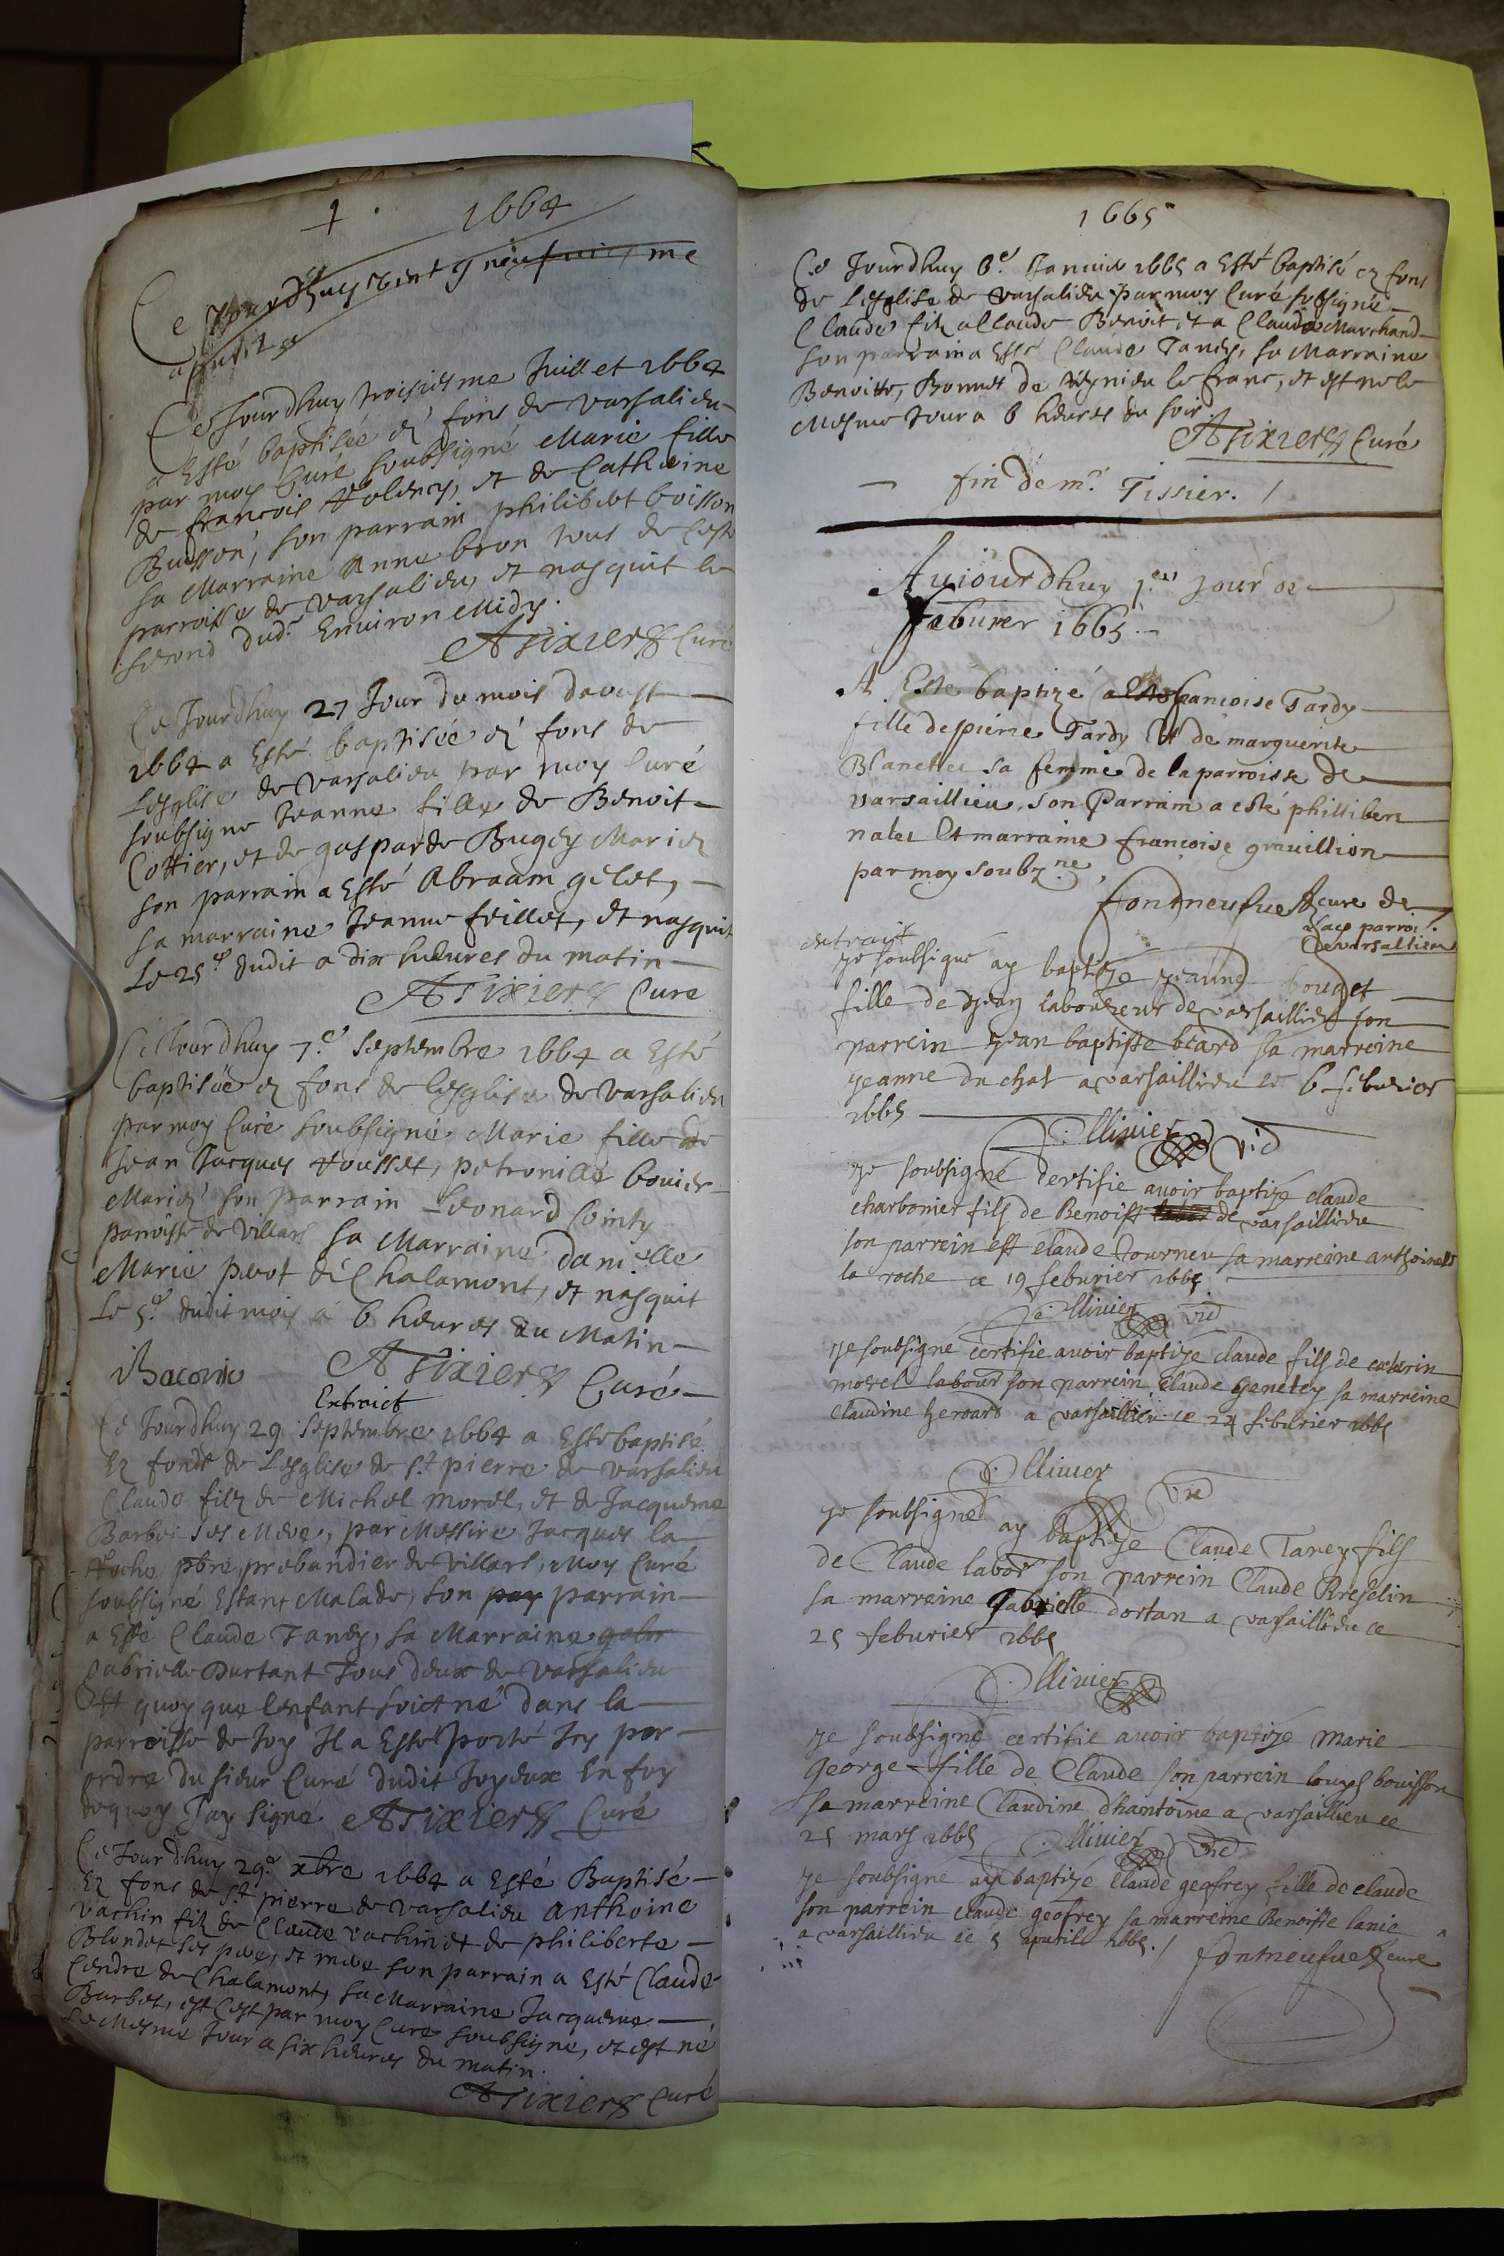 1664
Ce Jourdhuy vint g neufuiesme
Ce Jourdhuy troisiesme Juillet 1664
a Esté baptisée é fons de varsalieu
par moy Curé soubsigné Marie fille
de francois et de Catherine
Buisson, son parrain philibert boisson
sa Marraine Anne bron tous de Ceste
parroisse de varsalieu, et nasquit le
second dud.t Environ Midy.
ATixier Curé
Ce Jourdhuy 27 Jour du mois daoust
1664 a Esté baptisée é fons de
Lesglise de varsalieu par moy Curé
soubsigne Jeanne fille de Benoit
Cottier, et de gasparde Bugey Mariez
son parrain a Esté Abraam gilet,
sa marraine Jeanne feillet, et nasquit
Le 25.e dudit a dix heures du matin
ATixier Cure
Ce Jourdhuy 7.e Septembre 1664 a Esté
baptisée é fons de lesglise de varsalieu
par moy Curé soubsigné Marie fille de
Jean Jacques et petronille bouier
Mariés son parrain Leonard Cointy
parroisse de Villars sa Marraine damlle
Marie pivot de Chalamont, et nasquit
Le 5.e dudit mois a 6 heures du Matin
ATixier Curé
Extraict
Ce Jourdhuy 29 Septembre 1664 a Esté baptisé
Ez fonds de Lesglise de st pierre de varsalieu
Claude filz de Michel Morel, et de Jacqueme
Barbet ses Mere, par Messire Jacques la
Roche pbre, prebandier de Villars, Moy Curé
soubsigné Estant Malade, son pay parrain
a Esté Claude Tandy, sa Marraine gabr
Gabrielle Durtant Tous deux de varsalieu
Et quoy que lenfant soict né dans la
parroisse de Joy Il a Esté Porté Icy par
ordre du sieur Curé dudit Joyeux En foy
dequoy Jay signé ATixier Curé
Ce Jourdhuy 29.e xbre 1664 a Esté Baptisé
Ez fons de st pierre de varsalieu Anthoine
vachin filz de Claude vachin et de philiberte
Blondet ses pere, et mere son parrain a Esté Claude
Cendre de Chalamont, sa Marraine Jacqueme
Barbet, est Cest par moy Curé soubsigne, et est né
Le Mesme Jour a six heures du matin.
ATixier Curé
1665
Ce Jourdhuy 6.e Januier 1665 a Esté baptisé ez fons
de Lesglise de varsalieu par moy Curé soubsigné
Claude filz a Claude Benoit, et a Claudà Marchand
son parrain a Esté Claude Tandy, sa Marraine
Benoitte, Bonnet de Rignieu le franc, et est né le
Mesme Jour a 6 heures du soir.
ATixier Curé
fin de mr. Tissier. /
Aujourdhuy 1.er jour de
feburer 1665
A Esté baptizé a esté francoise Tardy
fille de pierre Tardy Et de marguerite
Blanchet sa femme de la parroisse de
varsaillieu. son Parrain a esté phillibert
natet Et marraine francoise grauillion
par moy soubz.né
fontneufue cure de
lad parroi.
de varsallieu
extrait
Je soubsigné ay baptize Jeanne bouget
fille de Jean laboureur de varsaillieu son
parrein Jean baptiste beard sa marreine
Jeanne du chat a varsaillieu ce 6 feburier
1665
Ollinier vic
Je soubsigné certifie auoir baptizé claude
charbonier fils de Benoist labor de varsaillieu
son parrein est claude tourneu sa marreine anthoinette
la roche ce 19 feburier 1665
Ollinier vic
Je soubsigne certifie auoir baptize claude fils de catherin
morel labour son parrein Claude genetey sa marreine
claudine gerard a varsaillieu ce 24 feburier 1665
Ollinier
vic
Je soubsigné ay baptize Claude Taney fils
de Claude labor son parrein Claude Breselin
sa marreine gabrielle dortan a varsaillieu ce
25 feburier 1665
Ollinier
Je soubsigné certifie auoir baptize Marie
George fille de Claude son parrein louys bouisson
sa marreine Claudine dhantoine a varsaillieu ce
25 mars 1665 Ollinier vic
Je soubsigné ay baptizé Claude geofrey fille de claude
son parrein claude geofrey sa marreine Benoiste lanie
a varsaillieu ce 5 apurill 1665./
fontneufue cure